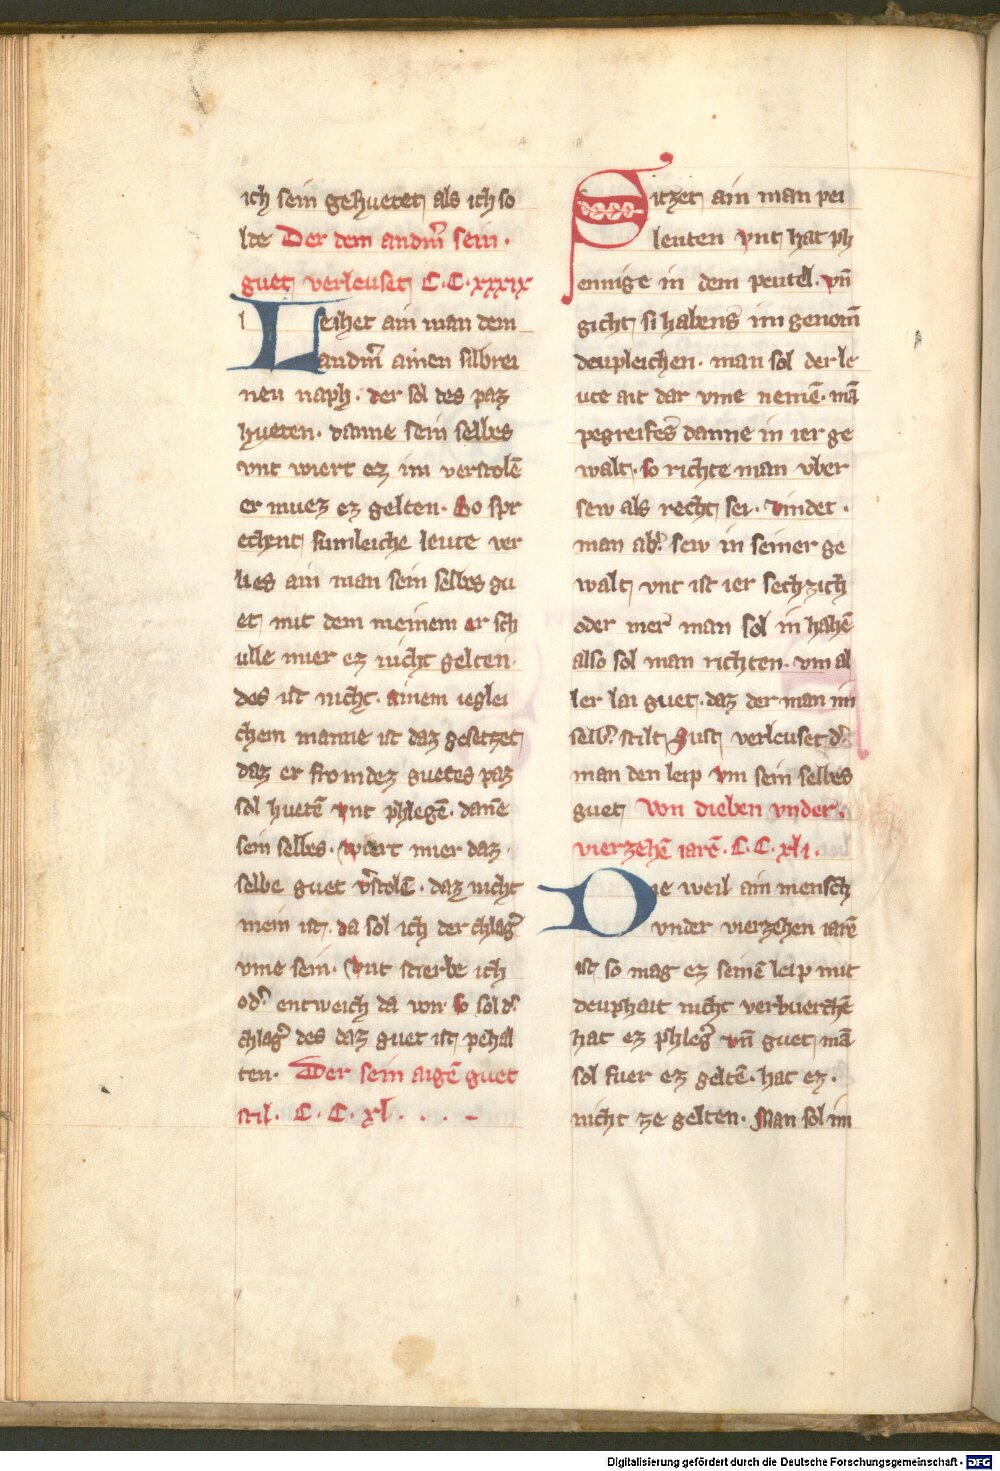 ich sein gehuetet als ich so
lte Der dem andm̄ sein ·
guet verleuset C·C·xxxix
l Leihet ain man dem
andm̄ ainen silbrei
nen naph · der sol des paz
hueten · danne sein selbes
vnt wiert ez im verstolē
er muez ez gelten · So spr
echent sumleiche leute ver
lies ain man sein selbes gu
et mit dem meinem er sch
ulle mier ez nicht gelten ·
des ist nicht · ainem ieglei
chem manne ist daz gesetzet
daz er from dez guetes paz
sol huetē vnt phlegē · dañe
sein selbes · wiert mier daz ·
selbe guet v̓stolē · daz nicht
mein ist · da sol ich der chlag̓
vme sein · vnt stierbe ich
od̓ entweich da von · so sol d̓
chlag̓ des daz guet ist pehal
ten · Der sein aigē guet
stil · C · C · xl · · · –
Sitzet ain man pei
leuten vnt hat ph
ennige in dem peutel · vñ
gicht si habens im genom̄
deupleichen · man sol der le
ute ait dar vme nemē · mā
pegreifes danne in ier ge
walt · so richte man vber
sew als recht sei · vindet ·
man ab̓ sew in seiner ge
walt vnt ist ier sechzich
oder mer man sol in hahē
also sol man richten · vm al
ler lai guet · daz der man im
selb̓ stilt Sust verleuset d̓
man den leip vm sein selbes
guet Von dieben vnder ·
vierzehē iarē · C·C·xli ·
Die weil ain mensch
vnder vierzehen iarē
ist so mag ez seinē leip mit
deuphait nicht verbuerchē
hat ez phleg̓ vñ guet mā
sol fuer ez geltē · hat ez ·
nicht ze gelten · Man sol im
Digitalisierung gefördert durch die Deutsche Forschungsgemeinschaft - DFG